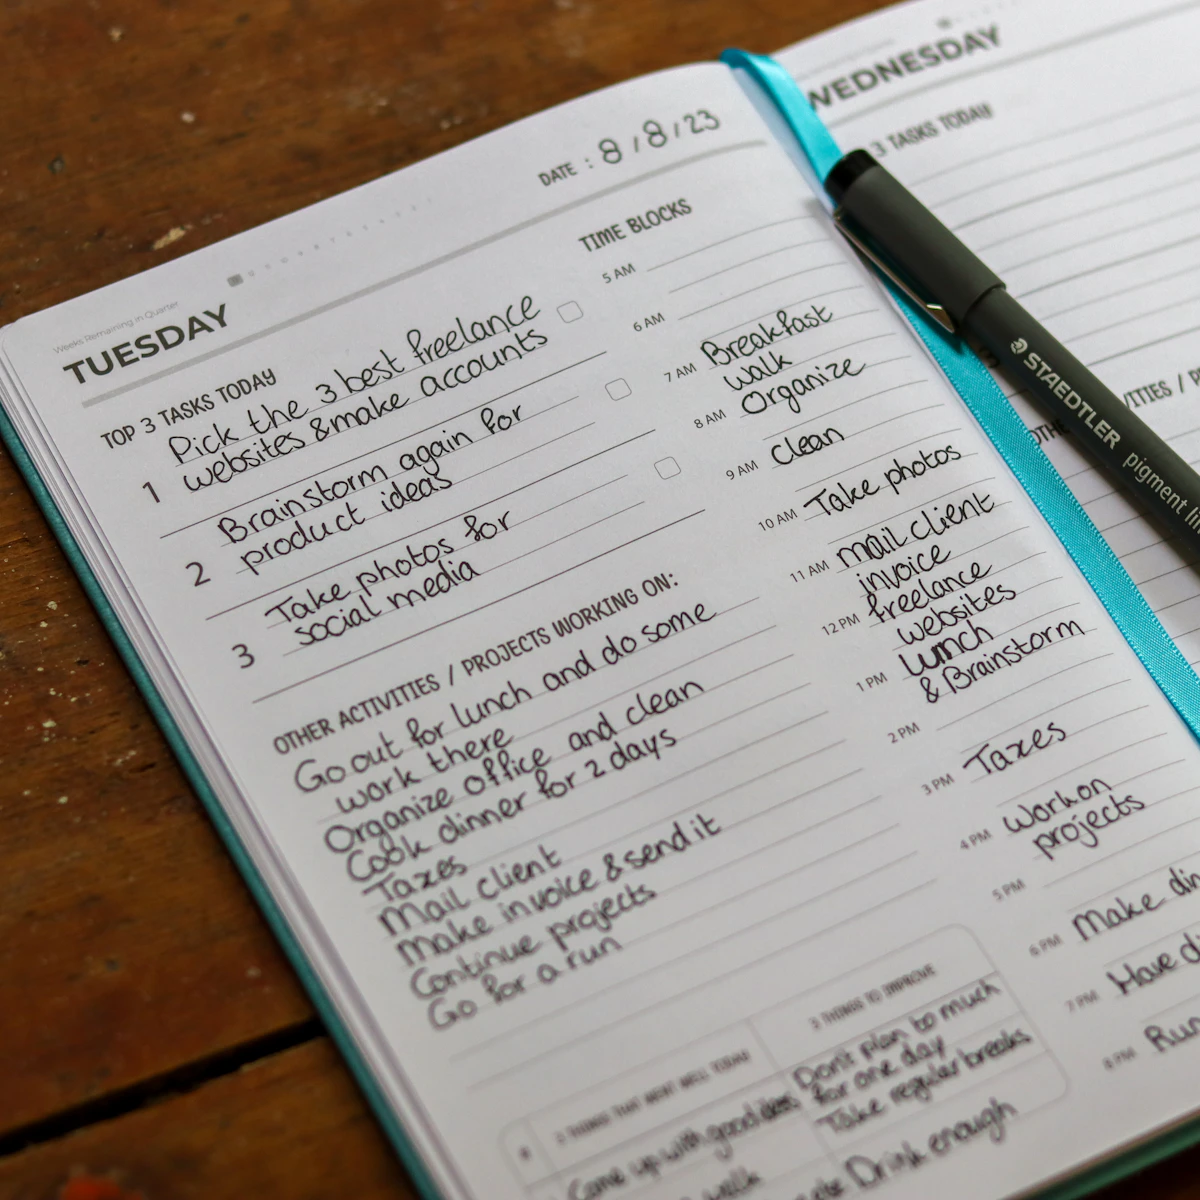 Weeks Remaining in Quarter
TUESDAY
DATE : 8/8/23
TOP 3 TASKS TODAY
1 Pick the 3 best freelance
websites & make accounts
2 Brainstorm again for
product ideas
3 Take photos for
social media
OTHER ACTIVITIES / PROJECTS WORKING ON:
Go out for lunch and do some
work there
Organize office and clean
Cook dinner for 2 days
Taxes
Mail client
Make invoice & send it
Continue projects
Go for a run
TIME BLOCKS
5 AM
6 AM
7 AM Breakfast
walk
8 AM Organize
9 AM Clean
10 AM Take photos
11 AM mail client
invoice
12 PM freelance
websites
1 PM lunch
& Brainstorm
2 PM
3 PM Taxes
4 PM work on
projects
5 PM
6 PM Make din
7 PM Have di
8 PM Run
3 THINGS THAT WENT WELL TODAY
Came up with good ideas
walk
3 THINGS TO IMPROVE
Don't plan to much
for one day
Take regular breaks
Drink enough
WEDNESDAY
3 TASKS TODAY
OTHE
VITIES / P
STAEDTLER
pigment li